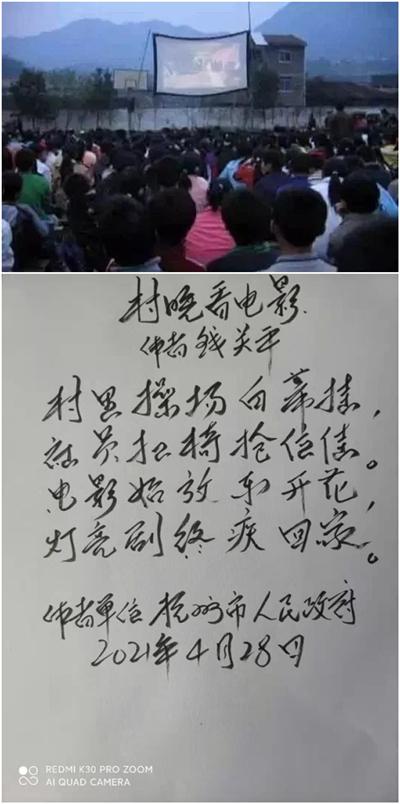 村晚看电影
作者 钱关平
村里操场白幕挂，
社员扛椅抢位佳。
电影始放乐开花，
灯亮剧终疾回家。
作者单位 杭州市人民政府
2021年4月28日
REDMI K30 PRO ZOOM
AI QUAD CAMERA